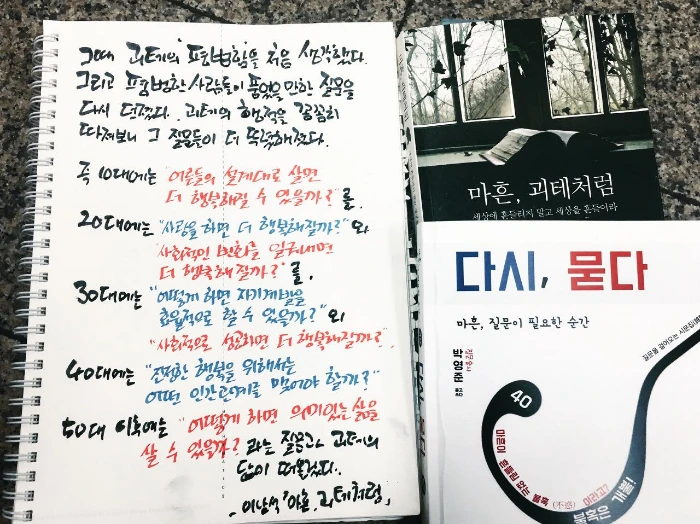 그때 괴테의 '평범함'을 처음 생각했다.
그리고 평범한 사람들이 품었을 만한 질문을
다시 던졌다. 괴테의 행적을 꼼꼼히
따져보니 그 질문들이 더 뚜렷해졌다.
즉 10대에는 "어른들의 설계대로 살면
더 행복해질 수 있을까?"를,
20대에는 "사랑을 하면 더 행복해질까?"와
"사회적인 변화를 일궈내면
더 행복해질까?"를,
30대에는 "어떻게 하면 자기계발을
효율적으로 할 수 있을까?"와
"사회적으로 성공하면 더 행복해질까?"
40대에는 "진정한 행복을 위해서는
어떤 인간관계를 맺어야 할까?"
50대 이후에는 "어떻게 하면 의미있는 삶을
살 수 있을까?" 라는 질문과 괴테의
답이 떠올랐다.
이남석 「마흔, 괴테처럼」
마흔, 괴테처럼
세상에 흔들리지 말고 세상을 흔들어라
다시, 묻다
마흔, 질문이 필요한 순간
질문술사
박영준
40
마흔이 흔들림 없는 불혹(不惑)이라고?